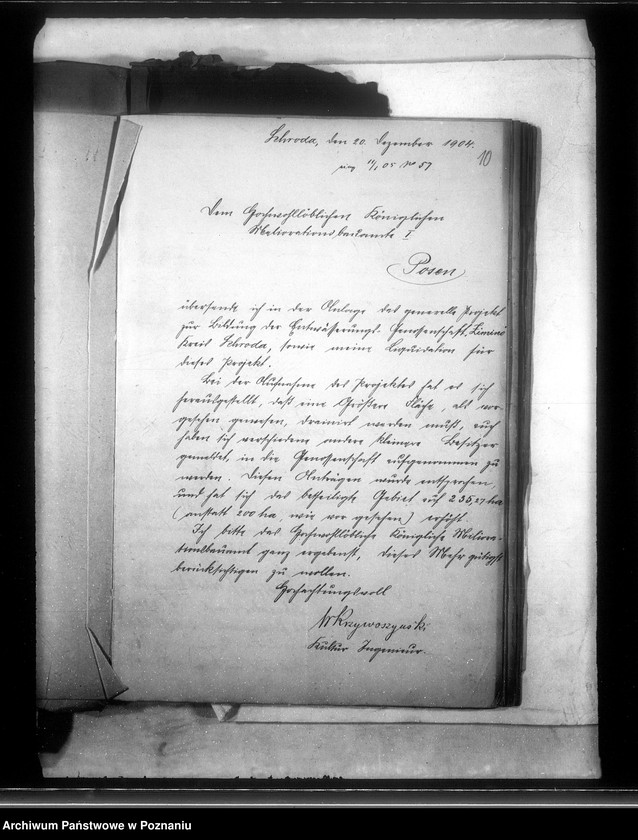 Schroda, den 20. Dezember 1904.
10
11/1 05 No 57
Dem Hochwohllöblichen Königlichen
Meliorationsbauamte I
Posen
übersende ich in der Anlage das generelle Projekt
zur Bildung der Entwässerungs-Genossenschaft
Kreis Schroda, sowie meine Liquidation für
dieses Projekt.
Bei der Aufnahme des Projektes hat es sich
herausgestellt, daß eine Größere Fläche, als vor-
gesehen gewesen, drainirt werden muß, auch
haben sich verschiedene andere kleinere Besitzer
gemeldet, in die Genossenschaft aufgenommen zu
werden. Diesen Anträgen wurde entsprochen,
und hat sich das betheiligte Gebiet auf 235,27 ha
(anstatt 200 ha, wie vor gesehen) erhöht.
Ich bitte das Hochwohllöbliche Königliche Meliora-
tionsbauamt ganz ergebenst, dieses Mehr gütigst
berücksichtigen zu wollen.
Hochachtungsvoll
Krzywoszyński
Kultur Ingenieur.
Archiwum Państwowe w Poznaniu